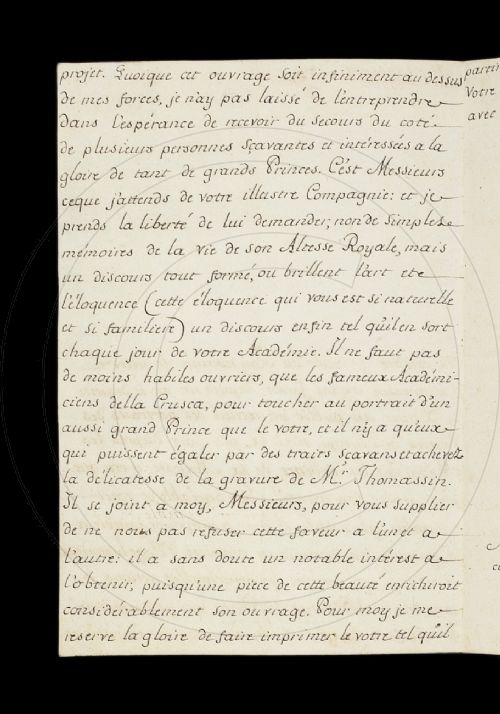 projet. Quoique cet ouvrage soit infiniment au dessus
de mes forces, je n'ay pas laissé de l'entreprendre
dans l'espérance de recevoir du secours du coté
de plusieurs personnes sçavantes et intéressées a la
gloire de tant de grands Princes. C'est Messieurs
ceque j'attends de votre illustre Compagnie: et je
prends la liberté de lui demander, non de simples
mémoires de la vie de son Altesse Royale, mais
un discours tout formé, ou brillent l'art et
l'éloquence (cette éloquence qui vous est si naturelle
et si familiere) un discours enfin tel qu'il en sort
chaque jour de votre Académie. Il ne faut pas
de moins habiles ouvriers, que les fameux Académi-
ciens della Crusca, pour toucher au portrait d'un
aussi grand Prince que le votre, et il n'y a qu'eux
qui puissent égaler par des traits sçavans et achevez
la délicatesse de la gravure de Mr. Thomassin.
Il se joint a moy, Messieurs, pour vous supplier
de ne nous pas refuser cette faveur a l'un et a
l'autre: il a sans doute un notable intérest a
l'obtenir, puisqu'une piece de cette beauté enrichiroit
considérablement son ouvrage. Pour moy je me
reserve la gloire de faire imprimer le votre tel qu'il
votre
avec